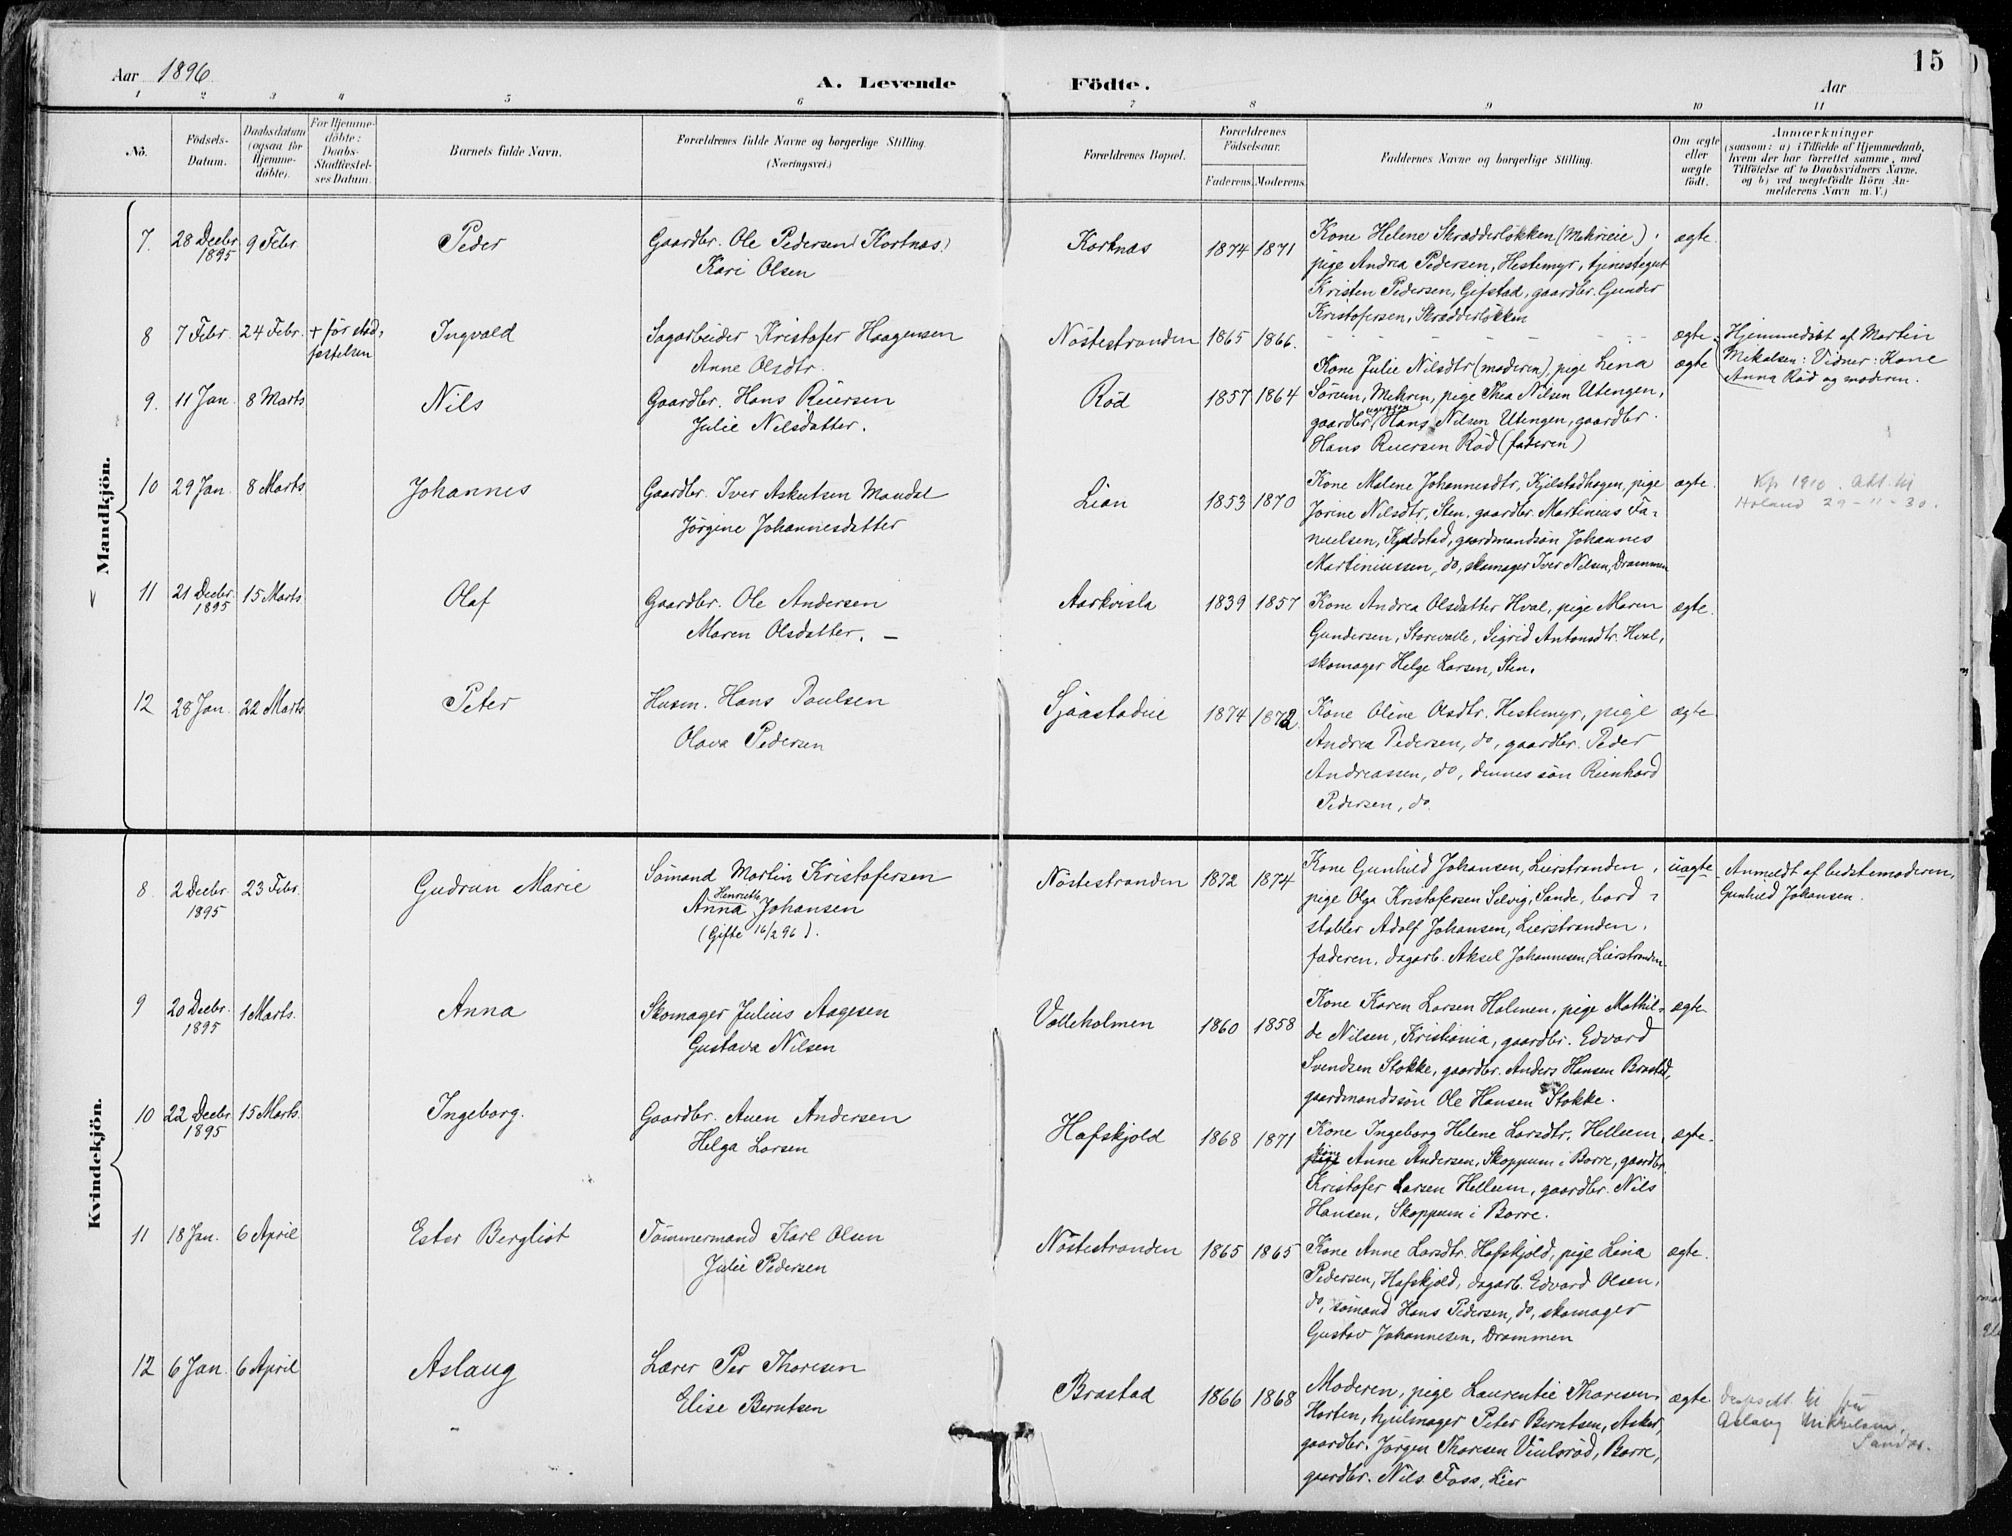 15
Aar 1896
A. Levende
Födte.
Aar
1 2 3 4 5 6 7 8 9 10 11
No.
Födsels-
Datum.
Daabsdatum
(ogsaa for
Hjemme-
døbte).
For Hjemme-
döbte:
Daabs-
Stadfæstel-
ses Datum.
Barnets fulde Navn.
Forældrenes fulde Navne og borgerlige Stilling.
(Næringsvei.)
Forældrenes Bopæl.
Forældrenes
Födselsaar.
Faderens. Moderens.
Faddernes Navne og borgerlige Stilling.
Om ægte
eller
uægte
födt.
Anmærkninger
(saasom: a) i Tilfælde af Hjemmedaab,
hvem der har forrettet samme, med
Tilföielse af to Daabsvidners Navne,
og b) ved uægtefödte Börn An-
melderens Navn m. V.)
Mandkjön.
7. 28 Decbr 1895 9 Febr Peder
Gaardbr. Ole Pedersen (Kortnæs)
Kari Olsen
Kortnæs 1874 1871
Kone Helene Skrædderløkken (Mehreie),
pige Andrea Pedersen, Hestemyr, tjenestegut
Kristen Pedersen, Gifstad, gaardbr. Gunder
Kristofersen, Skrædderløkken
ægte.
8 7 Febr. 24 Febr. + før stad-
fæstelsen
Ingvald
Sagarbeider Kristofer Haagensen
Anne Olsdtr.
Nöstestranden 1865 1866.
ægte.
Hjemmedöbt af Martin
Mikalsen: Vidner: Kone
Anna Röd og moderen.
9. 11 Jan. 8 Marts Nils
Gaardbr. Hans Reiersen
Julie Nilsdatter.
Röd 1857 1864
Kone Julie Nilsdtr (moderen), pige Lena
Sörum, Mehren, pige Thea Nilsen Utengen,
gaardbr. Hans Nilsen Utengen, gaardbr.
Hans Reiersen Röd (faderen)
ægte
10 29 Jan. 8 Marts Johannes
Gaardbr. Iver Askutsen Maudal
Jørgine Johannesdatter
Lian 1853 1870
Kone Malene Johannesdtr, Kjelstadhagen, pige
Jorine Nilsdtr, Sten, gaardbr. Martinius Fa-
nuelsen, Kjelstad, gaardmandsön Johannes
Martiniussen, do, skomager Iver Nilsen, Drammen
ægte.
Kp 1910. Att. til
Holand 29-11-30.
11 21 Decbr. 1895 15 Marts Olaf
Gaardbr. Ole Andersen
Maren Olsdatter. —
Aarkvisla 1839 1857
Kone Andrea Olsdatter Hval, pige Maren
Gundersen, Storevalle, Sigrid Antonsdtr. Hval,
skomager Helge Larsen, Sten.
ægte.
12 28 Jan. 22 Marts Peter
Husm. Hans Paulsen
Olava Pedersen
Sjaastadeie 1874 1872.
Kone Oline Olsdtr. Hestemyr, pige
Andrea Pedersen, do, gaardbr. Peder
Andreassen, do, dennes sön Reinhard
Pedersen, do.
ægte
Kvindekjön.
8 2 Decbr. 1895 23 Febr. Gudrun Marie
Sömand Martin Kristofersen
Henriette
Anna Johansen
(Gifte 16/2 96).
Nöstestranden 1872 1874
Kone Gunhild Johansen, Lierstranden,
pige Olga Kristofersen Selvig, Sande, bord-
stabler Adolf Johansen, Lierstranden,
faderen, dagarb. Aksel Johannesen, Lierstranden.
uægte
Anmeldt af bedstemoderen,
Gunhild Johansen.
9 20 Decbr. 1895 1 Marts. Anna
Skomager Julius Aagesen
Gustava Nilsen
Valleholmen 1860 1858
Kone Karen Larsen Holmen, pige Mathil-
de Nilsen, Kristiania, gaardbr. Edvard
Svendsen Stokke, gaardbr. Anders Hansen Brastad,
gaardmandssön Ole Hansen Stokke.
ægte
10 22 Decbr. 1895 15 Marts. Ingeborg.
Gaardbr. Auen Andersen
Helga Larsen
Hafskjold 1868 1871
Kone Ingeborg Helene Larsdtr. Hellum,
Anne Andersen, Skoppum i Borre, gaardbr.
Kristofer Larsen Hellum, gaardbr. Nils
Hansen, Skoppum i Borre.
ægte.
11 18 Jan. 6 April Ester Bergliot
Tömmermand Karl Olsen
Julie Pedersen
Nöstestranden 1865 1865
Kone Anne Larsdtr. Hafskjold, pige Lina
Pedersen, Hafskjold, dagarb. Edvard Olsen,
do, sömand Hans Pedersen, do, skomager
Gustav Johannesen, Drammen
ægte.
12 6 Jan. 6 April Aslaug
Lærer Per Thoresen
Elise Berntsen
Brastad 1866 1868
Moderen, pige Laurentie Thoresen,
Horten, hjulmager Peter Berntsen, Asker,
gaardbr. Jørgen Thoresen Viulsröd, Borre,
gaardbr. Nils Foss, Lier
ægte
Dåpsatt. til fru
Aslaug Mikkelsen,
Sandar.